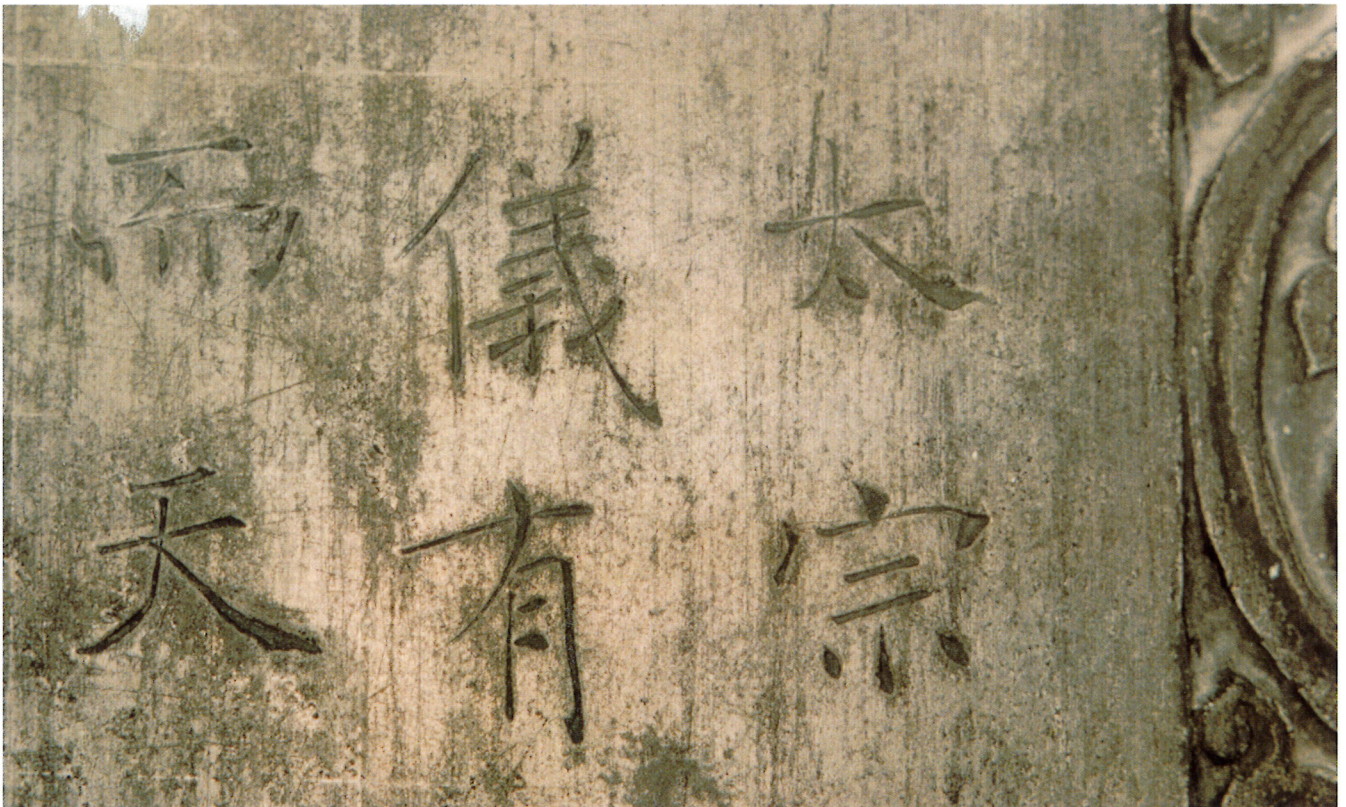 太宗
儀有
而天